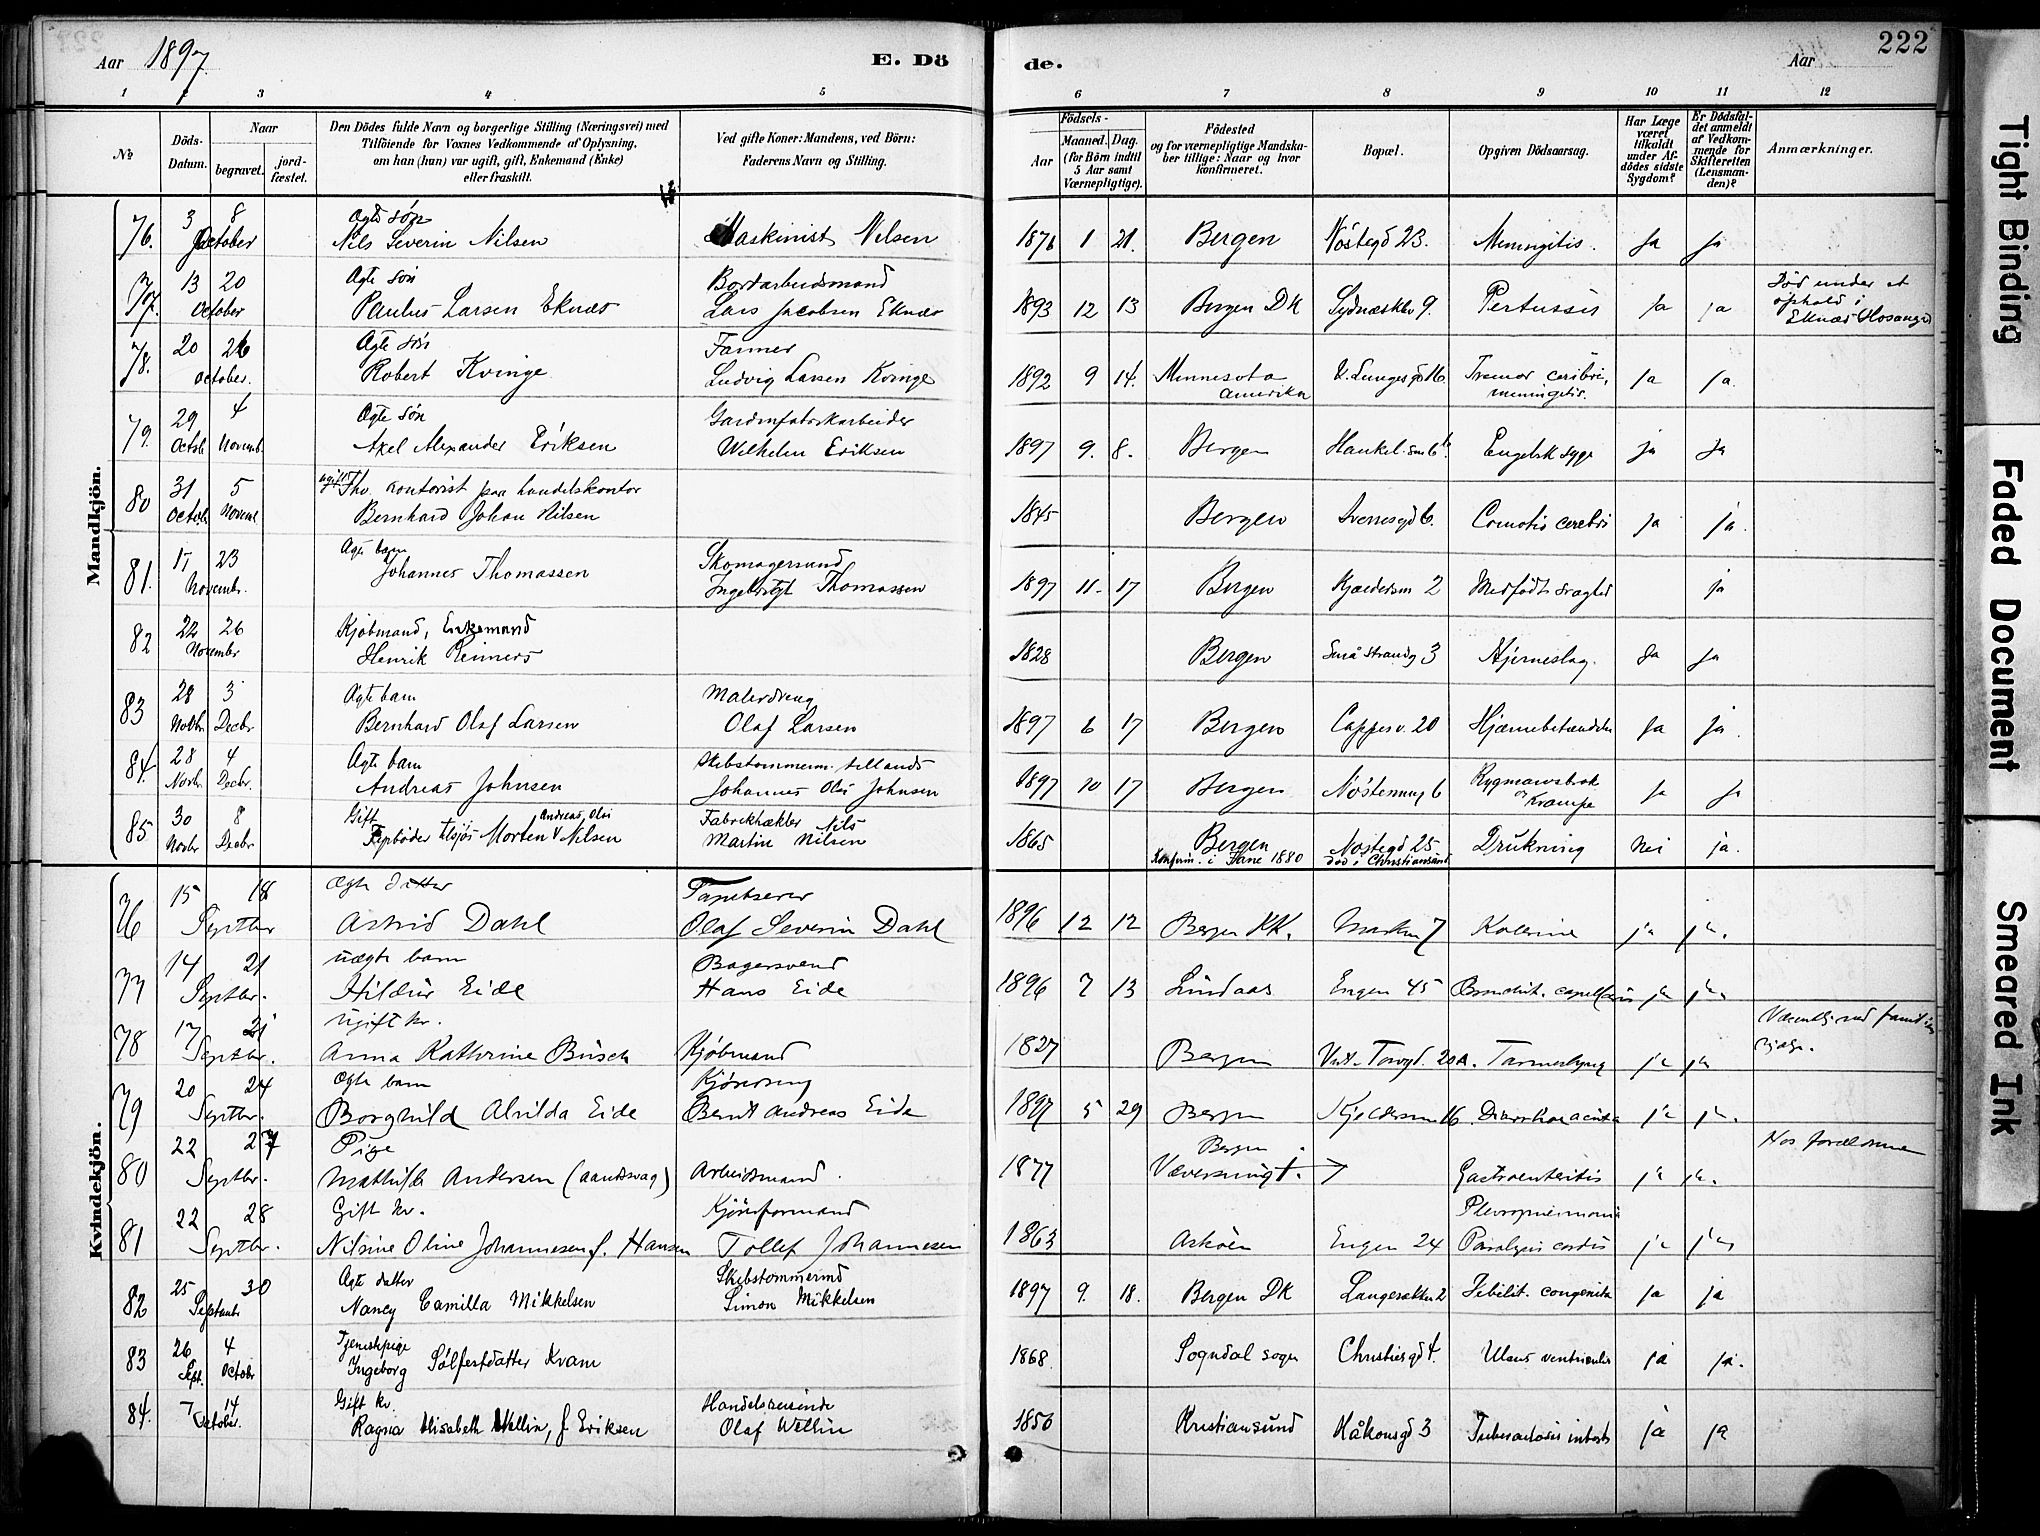 Aar 1897. E. Dö de. Aar 222
1 2 3 4 5 6 7 8 9 10 11 12
№
Döds-Datum.
Naar
begravet.
jord-fæstet.
Den Dödes fulde Navn og borgerlige Stilling (Næringsvei) med
Tilföiende for Voxnes Vedkommende af Oplysning,
om han (hun) var ugift, gift, Enkemand (Enke)
eller fraskilt.
Ved gifte Koner: Mandens, ved Börn:
Faderens Navn og Stilling.
Födsels-
Aar
Maaned. Dag.
(for Börn indtil
5 Aar samt
Værnepligtige).
Födested
og for værnepligtige Mandska-
ber tillige: Naar og hvor
konfirmeret.
Bopæl.
Opgiven Dödsaarsag.
Har Læge
været
tilkaldt
under Af-
dödes sidste
Sygdom?
Er Dödsfal-
det anmeldt
af Vedkom-
mende for
Skifteretten
(Lensman-
den)?
Anmærkninger.
Mandkjön.
76. 3 8 October Ægte søn Nils Severin Nilsen Maskinist Nilsen 1876 1 21. Bergen Nöstegd 23. Meningitis. Ja Ja
77. 13 20 October Ægte søn Paulus Larsen Eknæs Bordarbeidsmand Lars Jacobsen Eknæs 1893 12 13 Bergen DK Sydnæskl 9. Pertussis Ja Ja Död under et ophold i Eknæs Hosanger
78. 20 26 October. Ægte søn Robert Kvinge Farmer Ludvig Larsen Kvinge 1892 9 14. Minnesota Amerika L. Lungegd 16. Tumor cerebri, meningitis. Ja Ja.
79. 29 4 Octob Novemb. Ægte søn Axel Alexander Eriksen Gardinfabrikarbeider Wilhelm Eriksen 1897 9. 8. Bergen Hankel. sm 6 b. Engelsk syge ja Ja
80 31 5 Octob Novemb ugift Fhv. kontorist paa handelskontor Bernhard Johan Nilsen 1845 Bergen Sverresgd 6. Comotio cerebri ja ja.
81. 17 23 Novembr. Ægte barn Johannes Thomassen Skomagersvend Ingebrigt Thomassen 1897 11- 17 Bergen Kjældersm 2 Medfödt svaghed ja
82 22 26 November Kjöbmand, Enkemand Henrik Reimers 1828 Bergen Små strandg 3 Hjerneslag. Ja Ja
83 28 3 Novbr Decbr Ægte barn Bernhard Olaf Larsen Malerdreng Olaf Larsen 1897 6 17 Bergen Cappesv. 20 Hjærnebetændelse Ja ja.
84. 28 4 Novbr. Decbr. Ægte barn Andreas Johnsen Skibstømmerm. Johannes Olai Johnsen 1897 10 17 Bergen Nöstesmug 6 Rygmarvsbrok og Krampe Ja Ja
85 30 8 Novbr Decbr Gift Fyrböder tilsjös Morten Andreas Olai Nilsen Fabrikhækler Nils Martin Nilsen 1865 Bergen Konfirm. i Fane 1880 Nöstegd 25 död i Christiansund Drukning Nei ja.
Kvindekjön.
76 15 18 Septbr Ægte datter Astrid Dahl Tapetserer Olaf Severin Dahl 1896 12 12 Bergen KK. Marken 7 Kolerine ja ja.
77 14 21 Septbr. uægte barn Hildur Eide Bagersvend Hans Eide 1896 7 13 Lindaas Engen 45 Bronchit. capillaris ja ja
78 17 21 Septbr. Ugift kv. Anna Kathrine Büsch Kjöbmand 1827 Bergen Vest. Torvgd. 20A. Tarmeslyng ja ja Væsentlig ved familiens hjælp.
79 20 24 Septbr. Ægte barn Borghild Alvilda Eide Kjöredreng Bernt Andreas Eide 1897 5 29 Bergen Kjeldersm 16. Diarrhoe acuta ja ja.
80 22 27 Septbr. Pige Mathilde Andersen (aandssvag) Arbeidsmand. 1877 Bergen Væversmug 7. Gastroenteritis ja ja. Hos forældrene
81 22 28 Septbr. Gift kv. Nilsine Oline Johannesen f. Hansen Kjöreformand Tollef Johannesen 1863 Asköen Engen 24 Pleuropneumonia Paralysis cordis ja ja
82 25 30 Septembr Ægte datter Nancy Camilla Mikkelsen Skibstömmermd Simon Mikkelsen 1897 9. 18. Bergen DK Langesætten 2 Debilit. congenita Ja ja
83 26 4 Sept. Octobr Tjenestepige Ingeborg Sölfestdatter Kvam 1868. Sogndal sogn Christiesgd 4. Ulcus ventriculi ja ja.
84. 7 14 October. Gift kv. Ragna Elisabeth Wellin, f Eriksen Handelsreisende Olaf Wellin 1850 Kristiansund Håkonsgd 3 Tuberculosis intest ja ja
Tight Binding
Faded Document
Smeared Ink